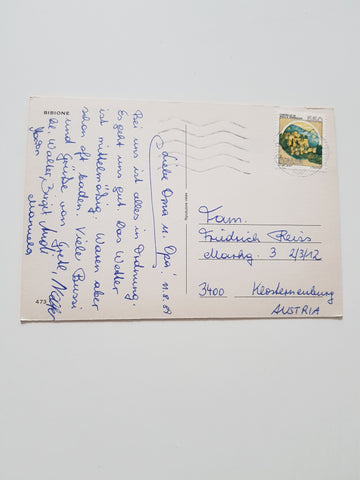 BIBIONE
Liebe Oma u. Opa! 11.8.89
Bei uns ist alles in Ordnung.
Es geht uns gut. Das Wetter
ist mittelmäßig. Waren aber
schon oft baden. Viele Bussi
und Grüße von Gretl,
Walter, Birgit,
Manuela
473
550
Fam.
Friedrich Reiss
Markg. 3 2/3/12
3400 Klosterneuburg
AUSTRIA